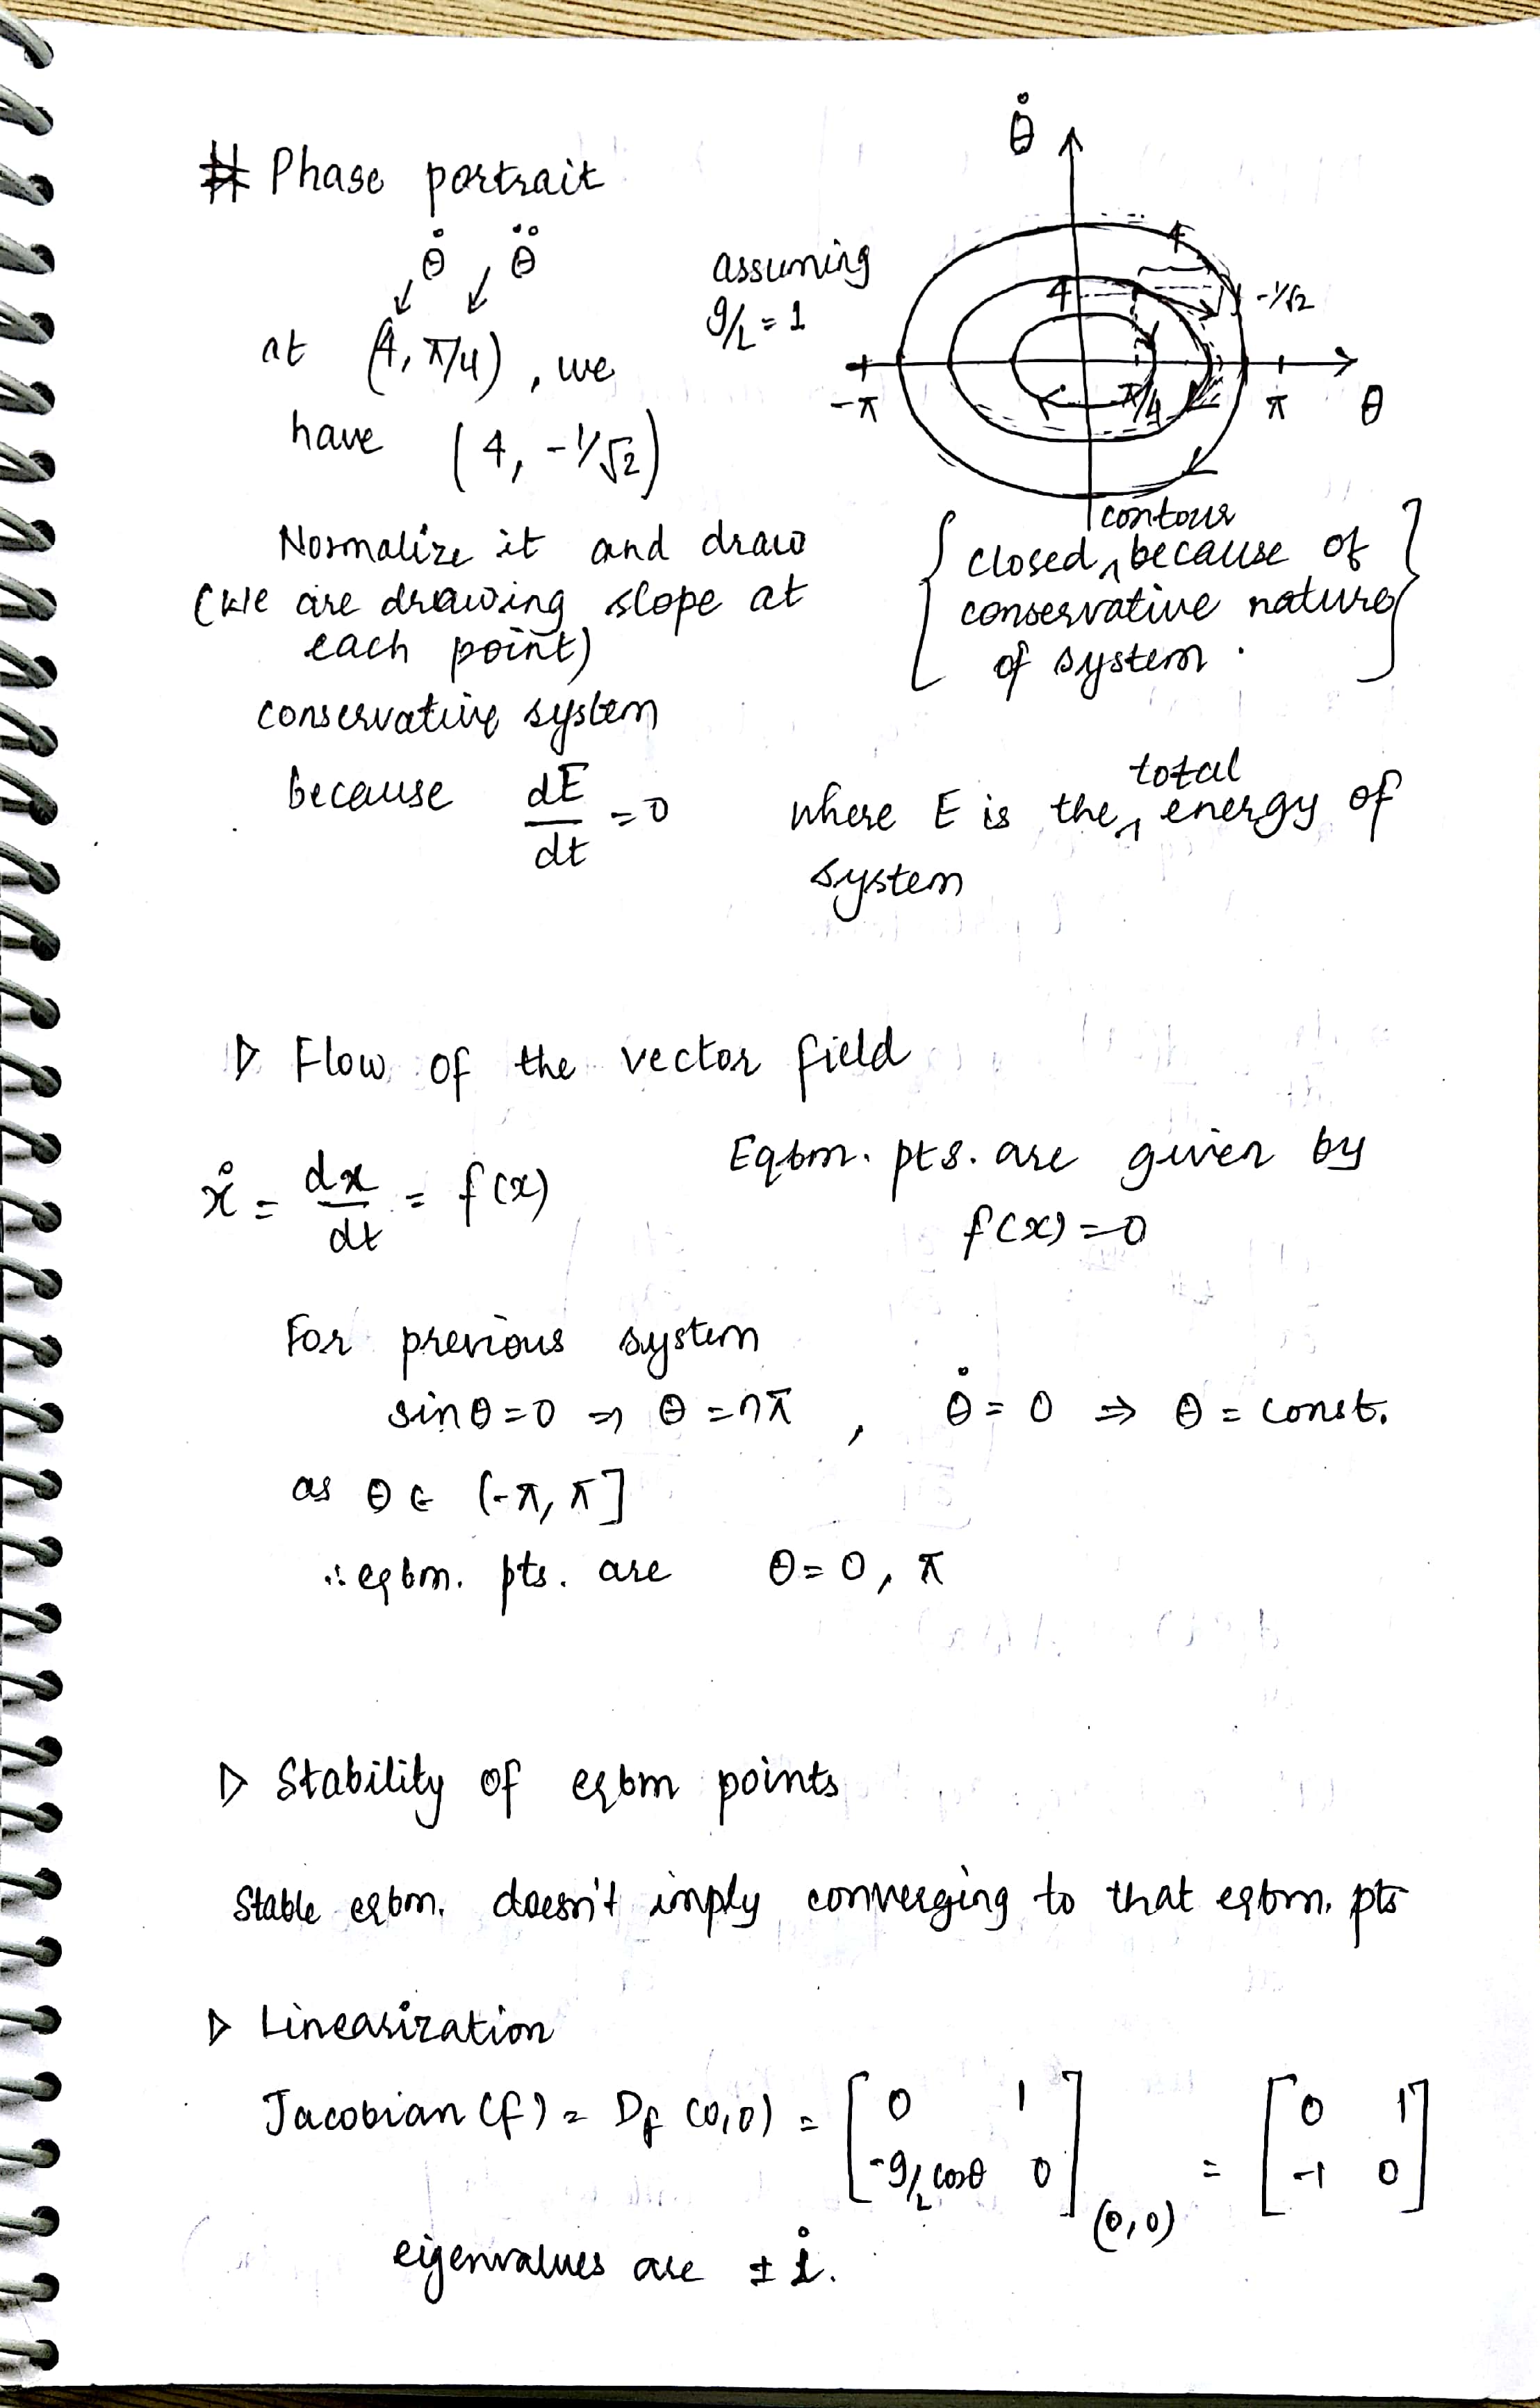 # Phase portrait
θ̇ θ̈
at (4, π/4), we
have (4, -1/√2)
assuming
g/L = 1
θ̇
4
4
-1/√2
-π
π/4
π
θ
Normalize it and draw
(We are drawing slope at
each point)
{ closed contour because of
conservative nature
of system. }
conservative system
because dE/dt = 0 where E is the total energy of
system
▷ Flow of the vector field
ẋ = dx/dt = f(x)
Eqbm. pts. are given by
f(x) = 0
For previous system
sinθ = 0 ⇒ θ = nπ , θ̇ = 0 ⇒ θ = const.
as θ ∈ (-π, π]
∴ eqbm. pts. are θ = 0, π
▷ Stability of eqbm points
Stable eqbm. doesn't imply converging to that eqbm. pts
▷ Linearization
Jacobian (f) = Df (0,0) = [0 1; -g/L cosθ 0](0,0) = [0 1; -1 0]
eigenvalues are ± i.